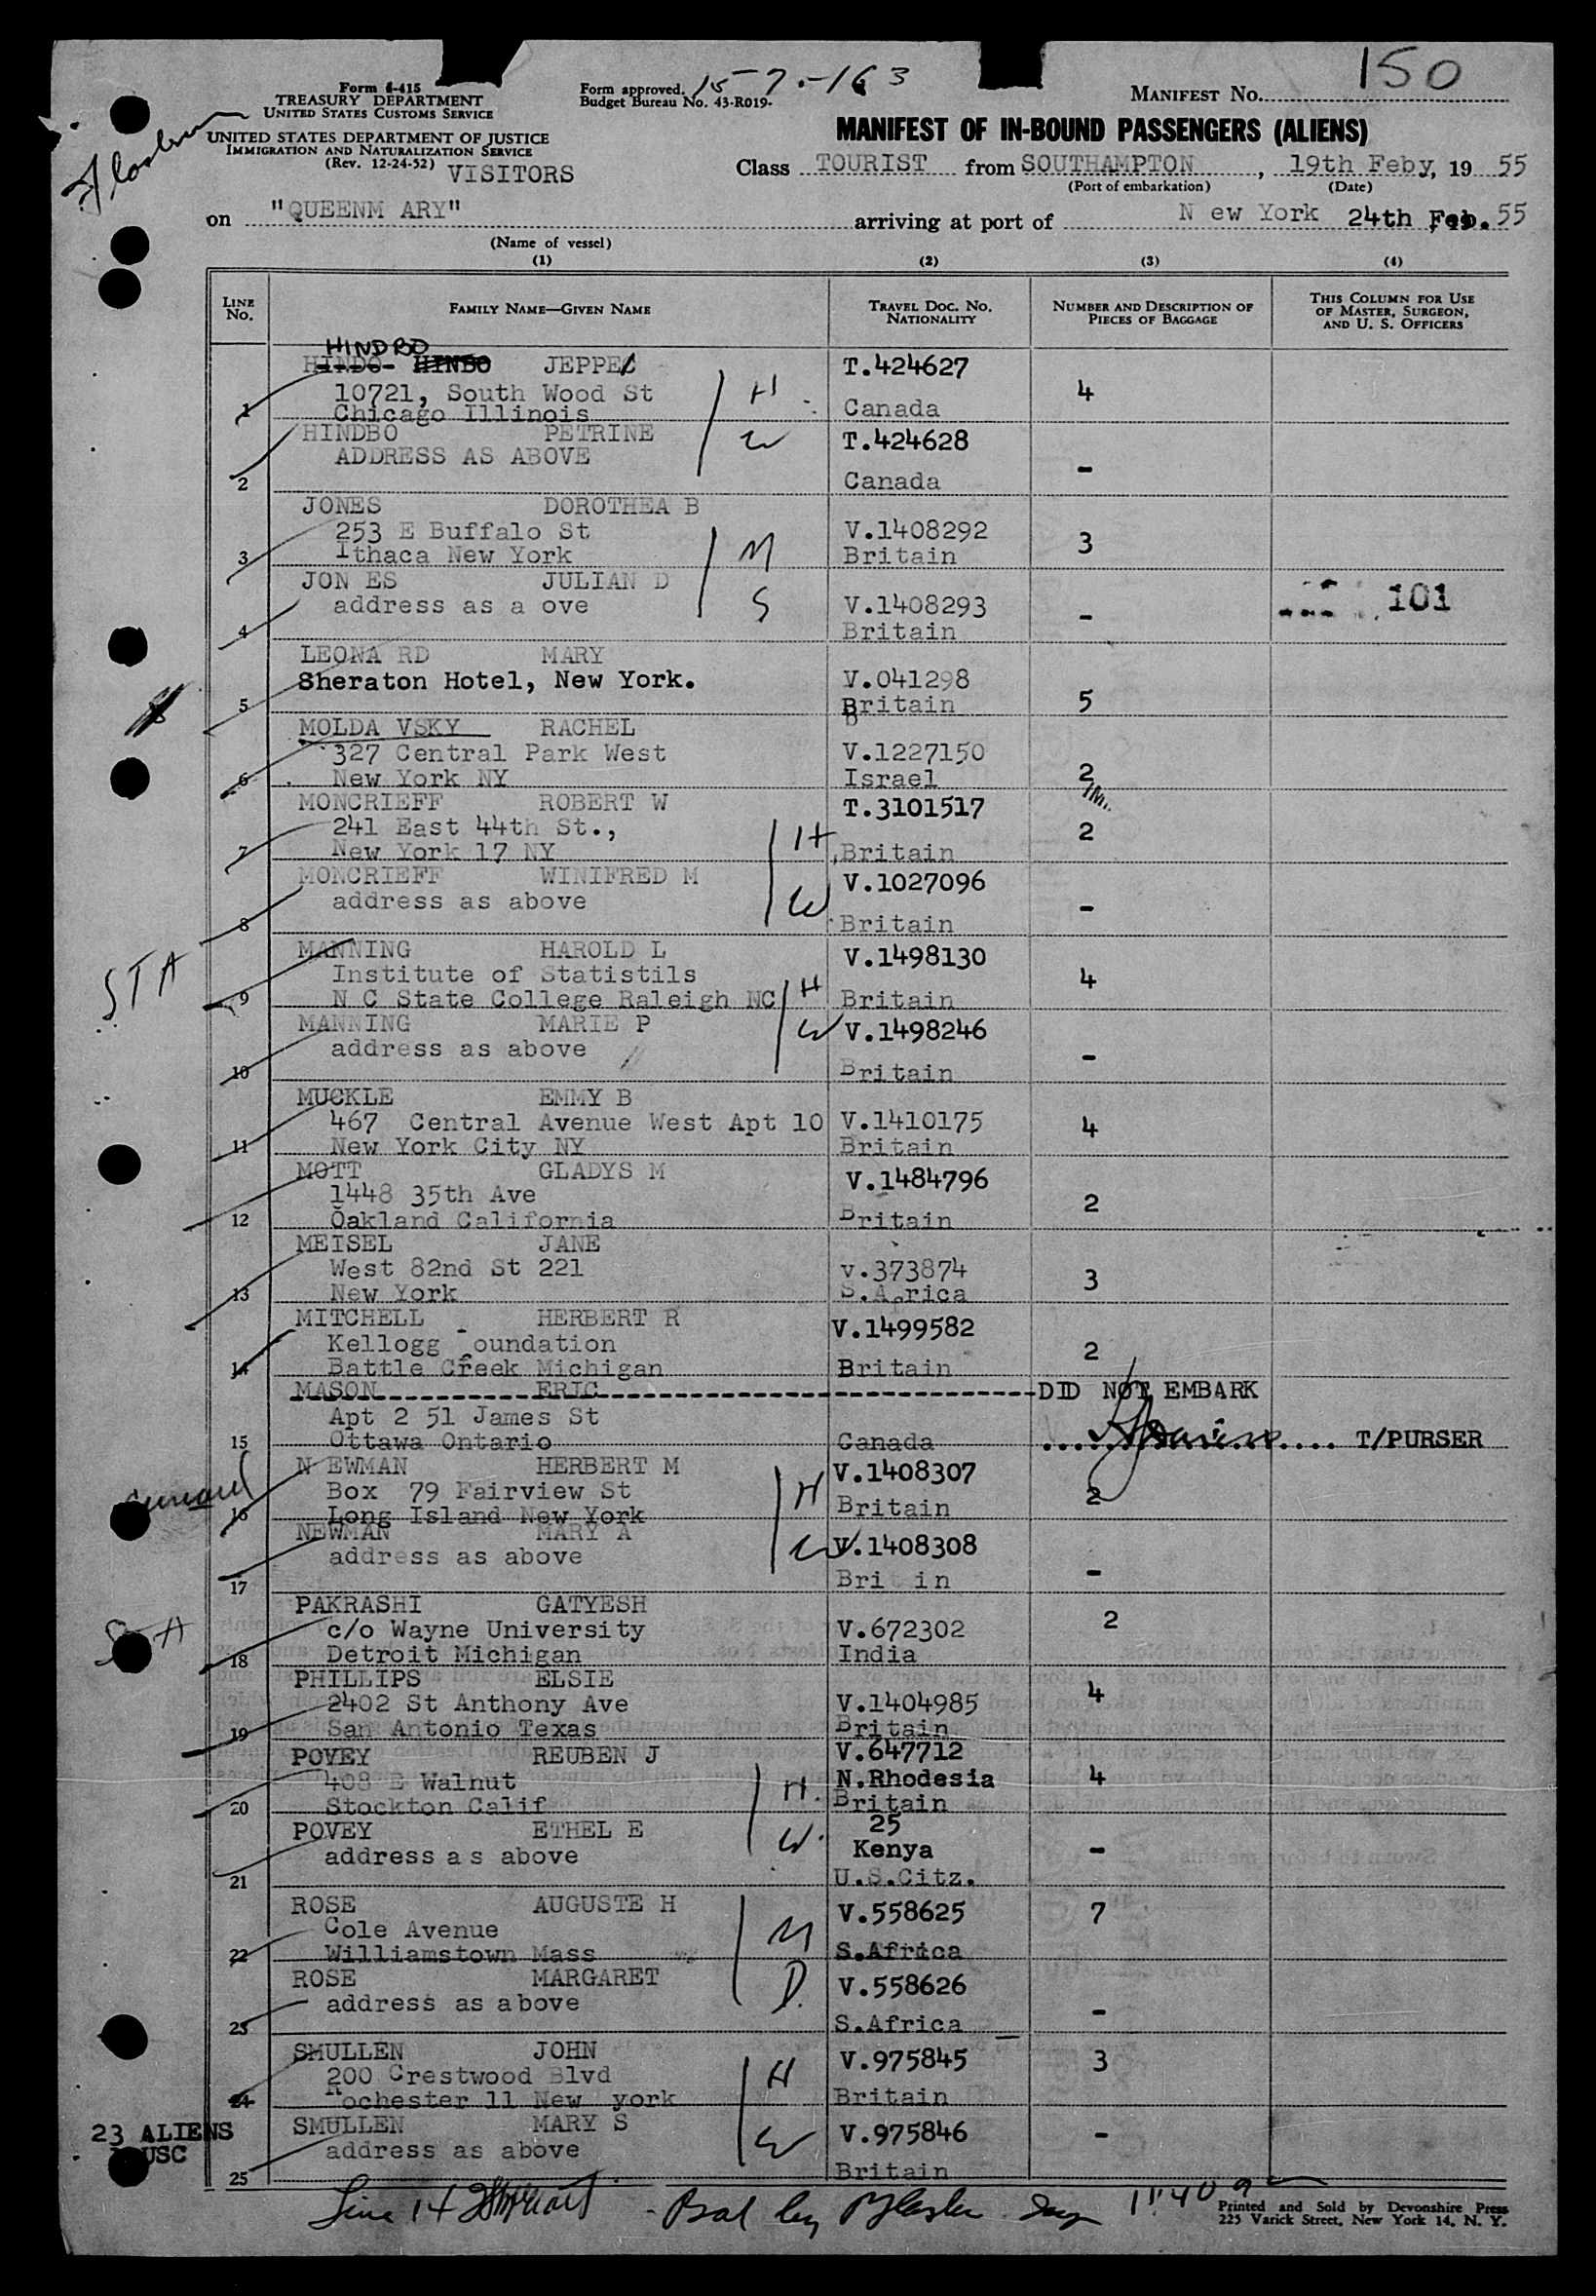 150
15-7.-163
Form I-415
TREASURY DEPARTMENT
UNITED STATES CUSTOMS SERVICE
UNITED STATES DEPARTMENT OF JUSTICE
IMMIGRATION AND NATURALIZATION SERVICE
(Rev. 12-24-52) VISITORS
Form approved.
Budget Bureau No. 43-R019-
MANIFEST NO.
MANIFEST OF IN-BOUND PASSENGERS (ALIENS)
Class TOURIST from SOUTHAMPTON, 19th Feby, 19 55
(Port of embarkation) (Date)
on "QUEENM ARY" arriving at port of N ew York 24th Feb. 55
(Name of vessel)
(1) (2) (3) (4)
LINE NO. FAMILY NAME—GIVEN NAME TRAVEL DOC. NO. NATIONALITY NUMBER AND DESCRIPTION OF PIECES OF BAGGAGE THIS COLUMN FOR USE OF MASTER, SURGEON, AND U. S. OFFICERS
HINDBO
HINDO HINBO JEPPE T.424627
10721, South Wood St H 4
1 Chicago Illinois Canada
HINDBO PETRINE W T.424628
ADDRESS AS ABOVE -
2 Canada
JONES DOROTHEA B
253 E Buffalo St V.1408292
3 Ithaca New York M Britain 3
JON ES JULIAN D
address as a ove S V.1408293 - 101
4 Britain
LEONA RD MARY
Sheraton Hotel, New York. V.041298
5 Britain 5
MOLDA VSKY RACHEL
327 Central Park West V.1227150
6 New York NY Israel 2
MONCRIEFF ROBERT W T.3101517
241 East 44th St., H 2
7 New York 17 NY Britain
MONCRIEFF WINIFRED M V.1027096
address as above W -
8 Britain
STA
MANNING HAROLD L V.1498130
Institute of Statistils 4
9 N C State College Raleigh NC H Britain
MANNING MARIE P W V.1498246
address as above -
10 Britain
MUCKLE EMMY B
467 Central Avenue West Apt 10 V.1410175 4
11 New York City NY Britain
MOTT GLADYS M V.1484796
1448 35th Ave 2
12 Oakland California Britain
MEISEL JANE
West 82nd St 221 v.373874 3
13 New York S.A rica
MITCHELL HERBERT R V.1499582
Kellogg oundation 2
14 Battle Creek Michigan Britain
MASON ERIC DID NOT EMBARK
Apt 2 51 James St
15 Ottawa Ontario Canada T/PURSER
N EWMAN HERBERT M V.1408307
Box 79 Fairview St H 2
16 Long Island New York Britain
NEWMAN MARY A W V.1408308
address as above -
17 Bri in
PAKRASHI GATYESH 2
c/o Wayne University V.672302
18 Detroit Michigan India
PHILLIPS ELSIE 4
2402 St Anthony Ave V.1404985
19 San Antonio Texas Britain
POVEY REUBEN J V.647712
408 E Walnut H. N.Rhodesia 4
20 Stockton Calif Britain
POVEY ETHEL E W. 25
address as above Kenya -
21 U.S.Citz.
ROSE AUGUSTE H V.558625 7
Cole Avenue M
22 Williamstown Mass S.Africa
ROSE MARGARET D. V.558626
address as above -
23 S.Africa
SMULLEN JOHN V.975845 3
200 Crestwood Blvd H
24 Rochester 11 New york Britain
SMULLEN MARY S W V.975846
address as above -
25 Britain
23 ALIENS
USC
Line 14
Printed and Sold by Devonshire Press
225 Varick Street, New York 14, N. Y.